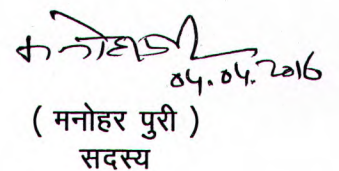 04.04.2016
( मनोहर पुरी )
सदस्य